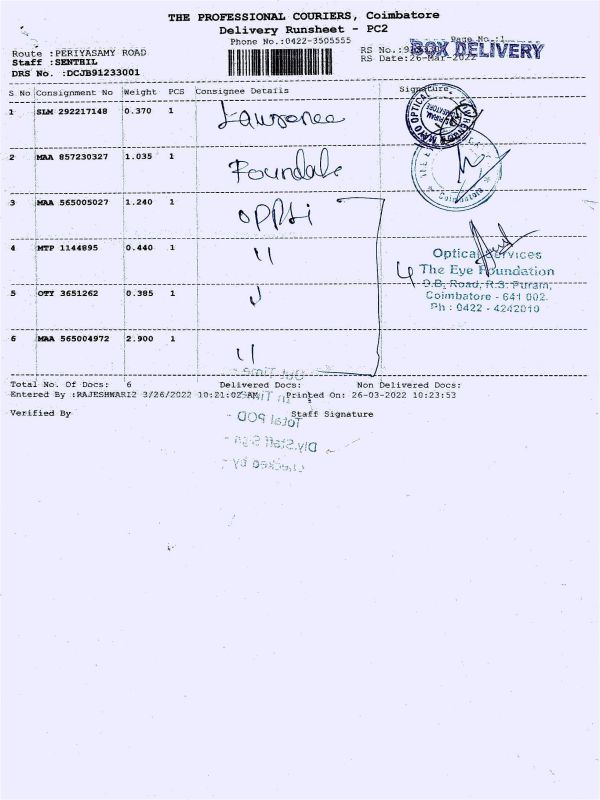 THE PROFESSIONAL COURIERS, Coimbatore
Delivery Runsheet - PC2
Phone No.:0422-3505555
Page No.:1
BOX DELIVERY
Route :PERIYASAMY ROAD
Staff :SENTHIL
DRS No. :DCJB91233001
RS No.:
RS Date:26-Mar-2022
S No Consignment No Weight PCS Consignee Details Signature
1 SLM 292217148 0.370 1 Lawrence
2 MAA 857230327 1.035 1
3 MAA 565005027 1.240 1
4 MTP 1144895 0.440 1 "
5 OTY 3651262 0.385 1
6 MAA 565004972 2.900 1 "
4
Optical Services
The Eye Foundation
D.B. Road, R.S. Puram,
Coimbatore - 641 002.
Ph : 0422 - 4242019
Total No. Of Docs: 6 Delivered Docs: Non Delivered Docs:
Entered By :RAJESHWARI2 3/26/2022 10:21:02 AM Printed On: 26-03-2022 10:23:53
Verified By Staff Signature
Out Time -
In Time -
Total POD -
Dly.Staff Sign -
Checked by -